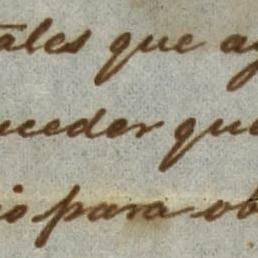 tales que ag
uceder que
io para ob